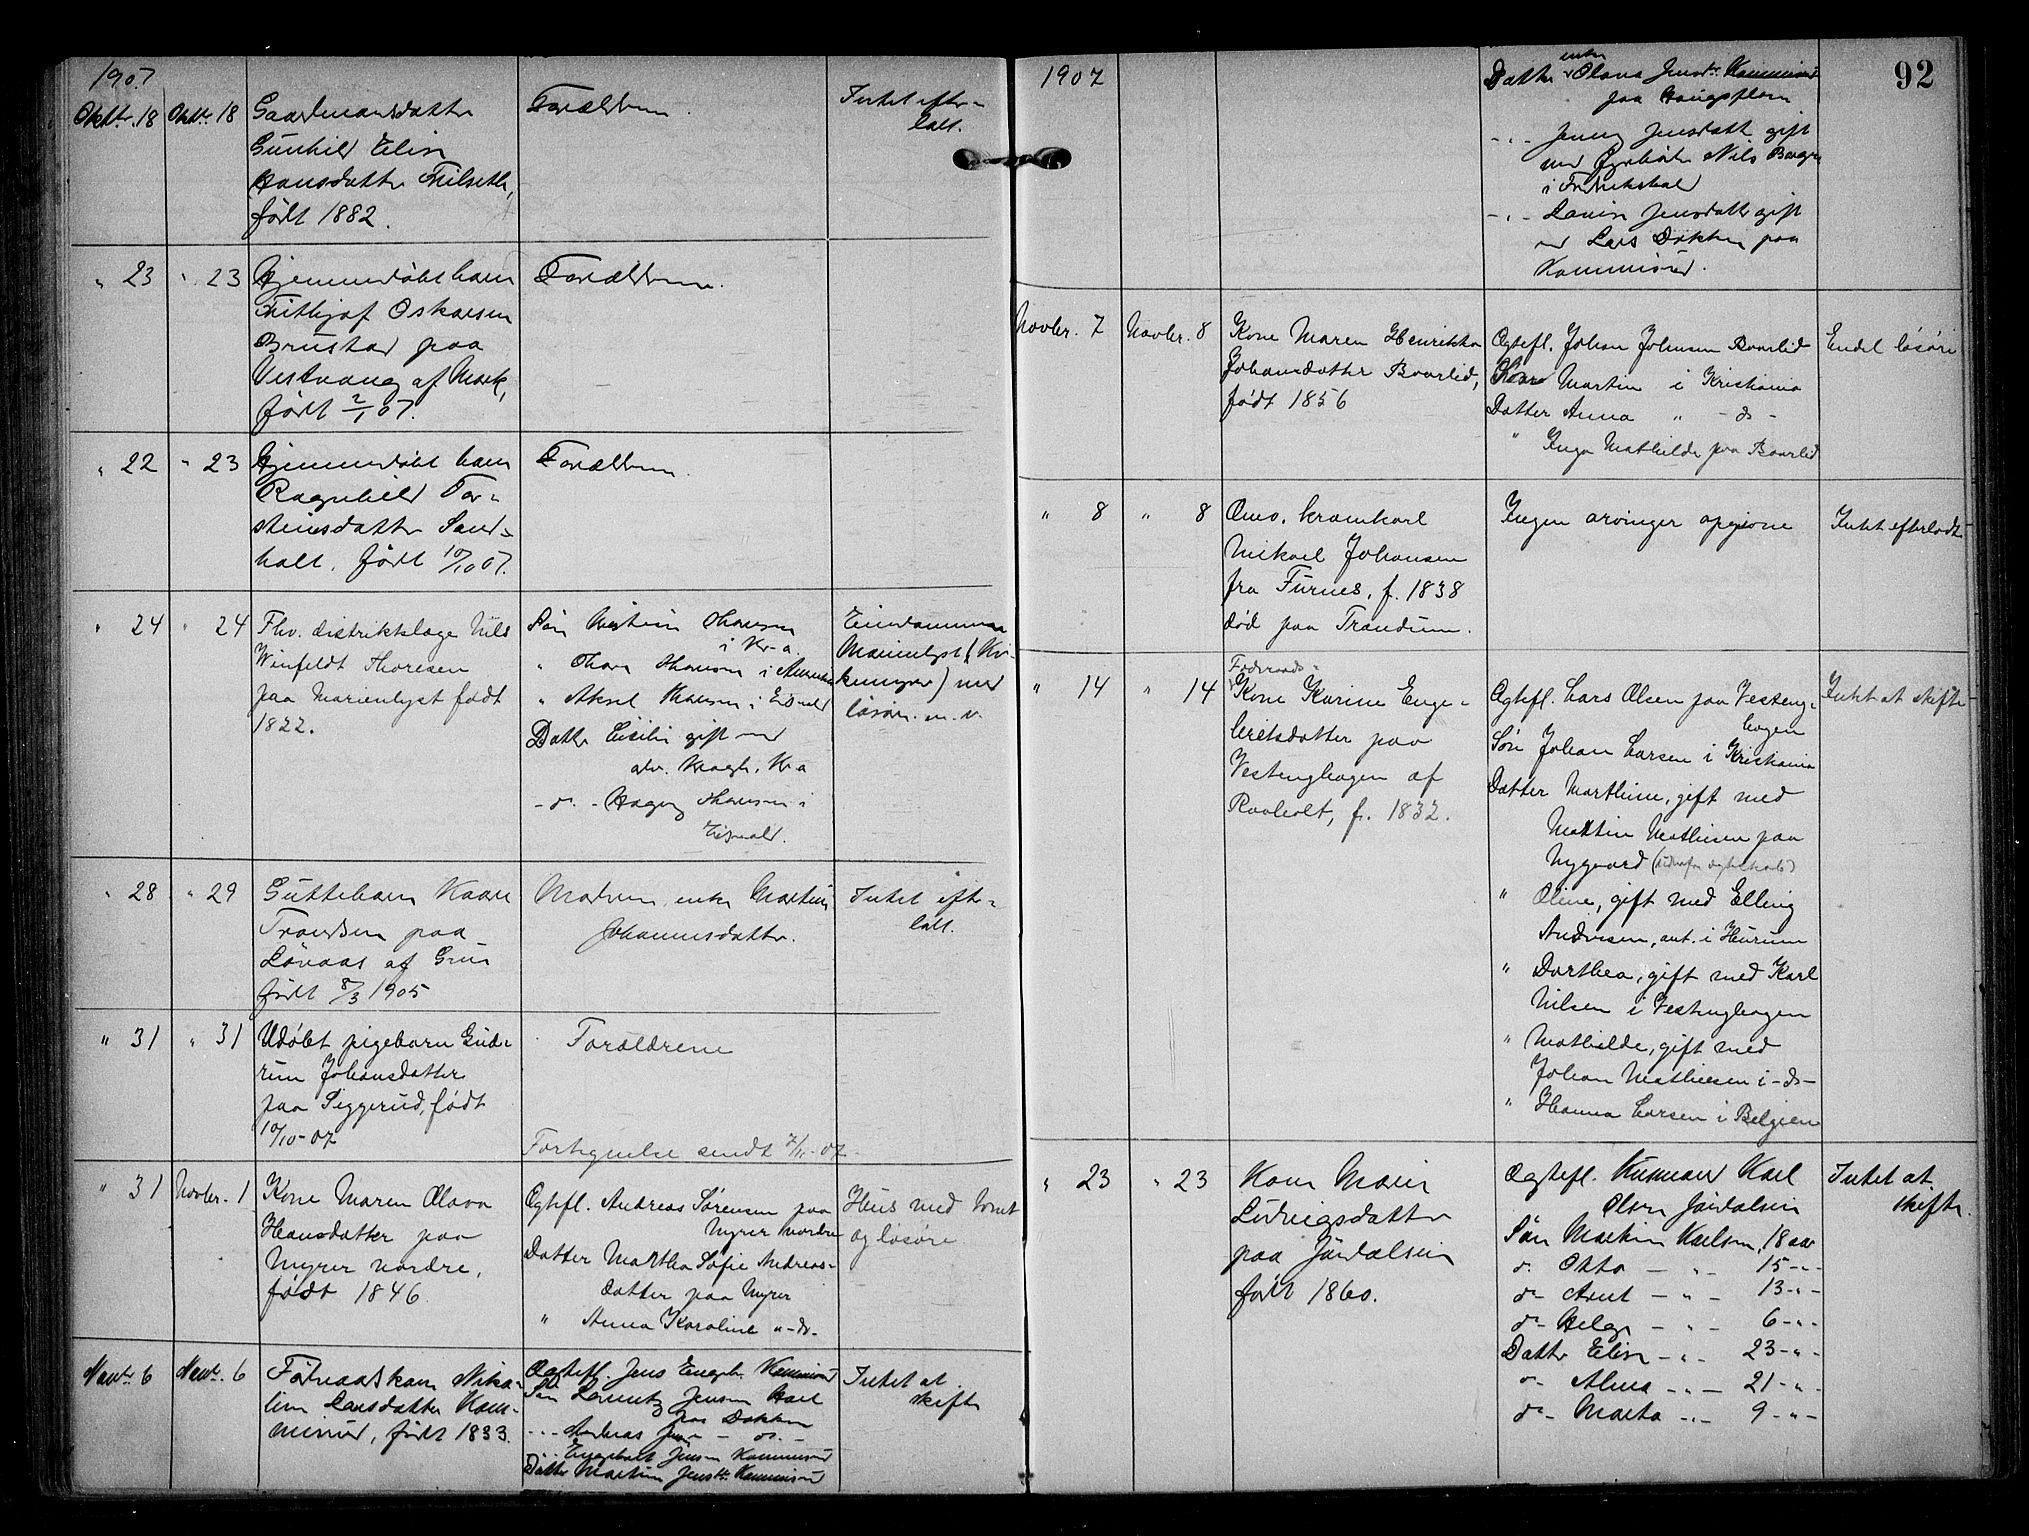 1907
Oktbr. 18 Oktbr. 18 Gaardmandsdatter
Gunhild Elise
Hansdatter
født 1882.
Forældrene.
Intet efter-
ladt.
" 23 " 23 Hjemmedøbt barn
Oskarsen
Brustad paa
af Mork,
født 2/1 07.
Forældrene.
" 22 " 23 Hjemmedøbt barn
Ragnhild Tor-
steinsdatter Sand-
holt, født 10/10 07.
Forældrene.
" 24 " 24 Fhv. distriktslæge Nils
Winfeldt Thoresen
paa Marienlyst født
1822.
Søn Thoresen
i Kr-a.
" Thoresen i Amerika
" Aksel Thoresen i Eidsvold
Datter Cicilie gift med
adv. Kragh, Kr-a
- do. - Thoresen i
Eidsvold.
Eiendommen
Marienlyst (
) med
løsøre m. v.
" 28 " 29 Guttebarn Kaare
Trondsen paa
Løvaas af Grue
født 8/3 1905
Moderen, enke Martine
Johannesdatter.
Intet efter-
ladt.
" 31 " 31 Udøbt pigebarn Gud-
run Johansdatter
paa Siggerud, født
10/10-07
Forældrene
Fortegnelse sendt 7/11-07
" 31 Novbr. 1 Kone Maren Olava
Hansdatter paa
Myrer nordre,
født 1846.
Ægtefl. Andreas Sørensen paa
Myrer nordre
Datter Martha Sofie Andreas-
datter paa Myrer
" Anna Karoline "-do-
Hus med tomt
og løsøre
Novbr. 6 Novbr. 6 Føderaadskone Niko-
line Larsdatter Kam-
merud, født 1833.
Ægtefl. Jens Engebr. Kammerud
Søn Lorentz Jensen
paa Dokken
- " - Andreas Jensen - do. -
- " - Engebret Jensen Kammerud
Datter Martine Jensdtr. Kammerud
Intet at
skifte
1907
92
enke
Datter Olava Jensdtr. Kammerud
paa
- " - Jenny Jensdatter gift
med Nils
i Fredrikshald
- " - Lovise Jensdatter gift
med Lars Dokken paa
Kammerud.
Novbr. 7 Novbr. 8 Kone Maren Henrikka
Johansdatter Baarlid,
født 1856
Ægtefl. Johan Johnsen Baarlid
Martin i Kristiania
Datter Anna " - do -
" Inga Mathilde paa Baarlid
Endel løsøre
" 8 " 8 Omv. kramkarl
Mikael Johansen
fra Furnes, f. 1838
død paa Trandum.
Ingen arvinger opgivne
Intet efterladt
" 14 " 14 Føderaads-
Kone Karine Enge-
bretsdatter paa
Vestenghagen af
Raaholt, f. 1832.
Ægtefl. Lars Olsen paa Vesteng-
hagen
Søn Johan Larsen i Kristiania
Datter Marthine, gift med
Martin Mathisen paa
Nygaard (udenfor ægteskab)
" Oline, gift med Elling
Andresen, ant. i Hurum
" Dorthea, gift med Karl
Nilsen i Vestenghagen
" Mathilde, gift med
Johan Mathiesen i -do-
" Hanna Larsen i Belgien
Intet at skifte
" 23 " 23 Kone Marie
Ludvigsdatter
paa Jørdalseie
født 1860.
Ægtefl. Husmand Karl
Olsen Jørdalseie
Søn Martin Karlsen, 18 aar
do- Otto - " - 15 - " -
do- Arnt - " - 13 - " -
do- Helge - " - 6 - " -
Datter Elise - " - 23 - " -
do- Alma - " - 21 - " -
do- Marta - " - 9 - " -
Intet at
skifte.